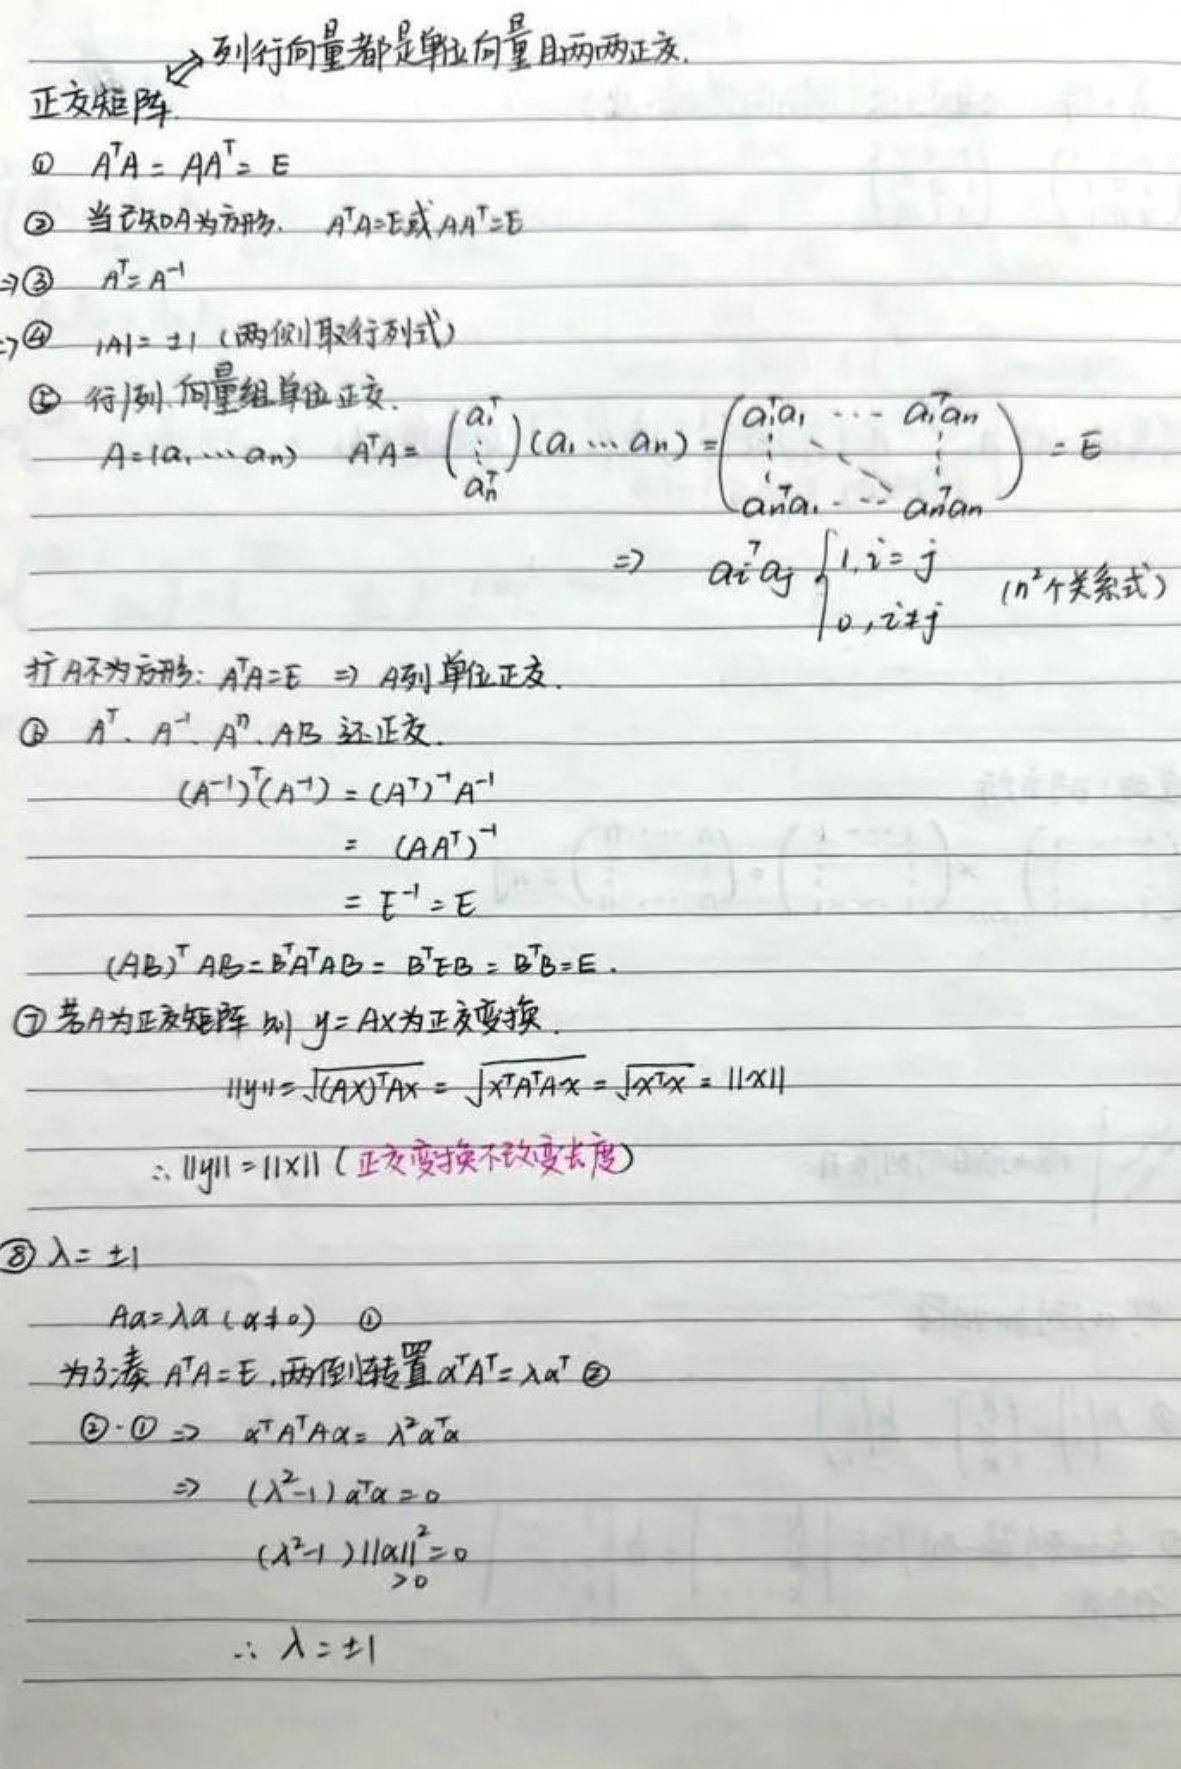 列行向量都是单位向量且两两正交.
正交矩阵.
① AᵀA = AAᵀ = E
② 当已知A为方形. AᵀA=E或AAᵀ=E
⇒③ Aᵀ=A⁻¹
⇒④ |A|= ±1 (两侧取行列式)
⑤ 行/列.向量组单位正交.
A=(a₁ ⋯ aₙ) AᵀA= (a₁ᵀ ⋮ aₙᵀ)(a₁ ⋯ aₙ) = (a₁ᵀa₁ ⋯ a₁ᵀaₙ ⋮ ⋱ ⋮ aₙᵀa₁ ⋯ aₙᵀaₙ) = E
⇒ aᵢᵀaⱼ { 1, i=j
0, i≠j (n²个关系式)
扩A不为方形: AᵀA=E ⇒ A列单位正交.
⑥ Aᵀ、A⁻¹、Aⁿ、AB 还正交.
(A⁻¹)ᵀ(A⁻¹) = (Aᵀ)⁻¹A⁻¹
= (AAᵀ)⁻¹
= E⁻¹ = E
(AB)ᵀAB=BᵀAᵀAB= BᵀEB = BᵀB=E.
⑦ 若A为正交矩阵 则 y=AX为正交变换.
||y||=√(AX)ᵀAx = √xᵀAᵀAx = √xᵀx = ||x||
∴ ||y||=||x|| (正交变换不改变长度)
⑧ λ= ±1
Aα=λα (α≠0) ①
为了凑 AᵀA=E,两侧转置αᵀAᵀ=λαᵀ ②
②·① ⇒ αᵀAᵀAα= λ²αᵀα
⇒ (λ²-1) αᵀα=0
(λ²-1)||α||²=0
>0
∴ λ=±1